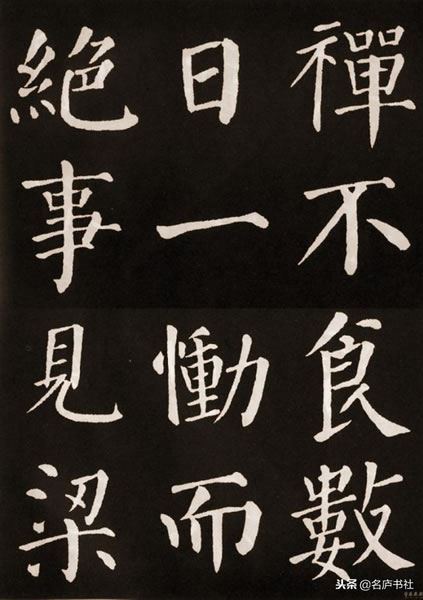 禪不食數
日一慟而
絶事見梁
头条 @名庐书社